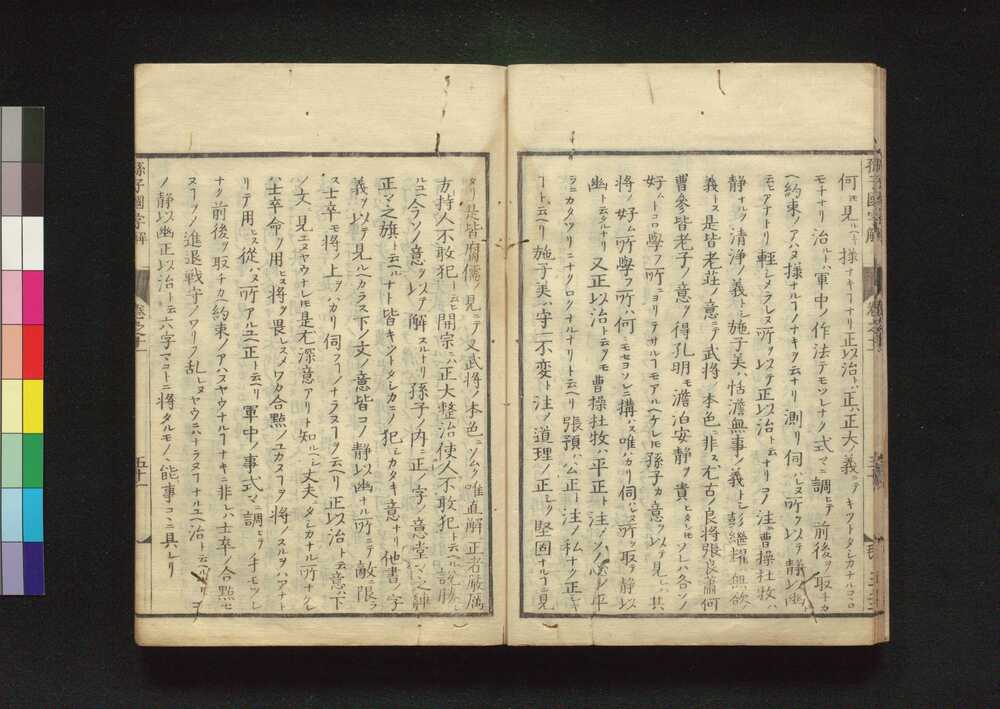 何モ見ルヘキ様ナキフナリ正以治トハ正ハ正大ノ義ニテキツトタシカナルコロ
モチナリ治ルトハ軍中ノ作法テモツレナク式マニ調ヒテ前後ヲ取チカ
ヘ約束ノアハヌ様ナルヿノナキヲ云ナリ測リ伺ハレヌ所ヲ以テ静以幽ト
云ヒアナトリ軽シメラレヌ所ヲ以テ正以治ト云ナリ注ニ曹操杜牧ハ
静ナルヲ清浄ノ義トシ施子美ハ恬澹無事ノ義トシ彭繼耀ハ無欲ノ
義トス是皆老荘ノ意ニテ武將ノ本色ニ非ス尤古ノ良將張良蕭何
曹參皆老子ノ意ヲ得孔明モ澹泊安静ヲ貴ヒタレモソレハ各ソノ
好ムトコロ學フ所ニヨリテサルヿモアルヘケレモ孫子カ意ヲ以テ見レハ其
將ノ好ム所學フ所ハ何ニモセヨソレニ搆ハス唯ハカリ伺ハレヌ所ヲ取テ静以
幽ト云タルナリ又正以治ト云ヲモ曹操杜牧ハ平正ト注ソノ心シ平
ラニカタツリニナクロクナルナリト云ヘリ張預ハ公正ト注ノ私ナク正キ
ヿト云ヘリ施子美ハ守一不変ト注ノ道理ノ正シク堅固ナルヿニ見
タリ是皆腐儒ノ見ニテ又武將ノ本色ニソムク唯直解ニ正者厳厲
方持人不敢犯ト云ヒ開宗ニハ正大整治使人不敢犯ト云ヘル説勝レ
ルユヘ今ソノ意ヲ以テ解スルナリ孫子ノ内ニ正ノ字ノ意堂マノ陣
正マノ旗ト云ヘルナト皆キントタシカニノ犯シカタキ意ナリ他書ノ字
義ヲ以テ見ルヘカラス下ノ文ノ意皆コノ静以幽ナル所ニテ敵ニ限ラ
ス士卒モ將ノ上ヲハカリ伺フヿノナラヌヿヲ云ヘリ正以治ト云意ハ下
ノ文ニ見エヌヤウナレモ是尤深意アリト知ルヘシ丈夫ニタシカナル所ナケレ
ハ士卒命ヲ用ヒス將ヲ畏レスメワカ合點ノユカヌヿヲハ將ノスルヲハアナト
リテ用ヒス從ハヌ所アルユヘ正ト云ヘリ軍中ノ事式マニ調ヒテ手モツレ
ナク前後ヲ取チカヘ約束ノアハヌヤウナルヿナキニ非レハ士卒ノ合點セ
ヌヿヲノ進退戦守ノワリフ乱レヌヤウニハナラヌヿナルユヘ治ト云ヘル
ノ静以幽正以治ト云六字マコトニ將タルモノヽ能事コヽニ具レリ
孫子國字解
卷之十一
五十一